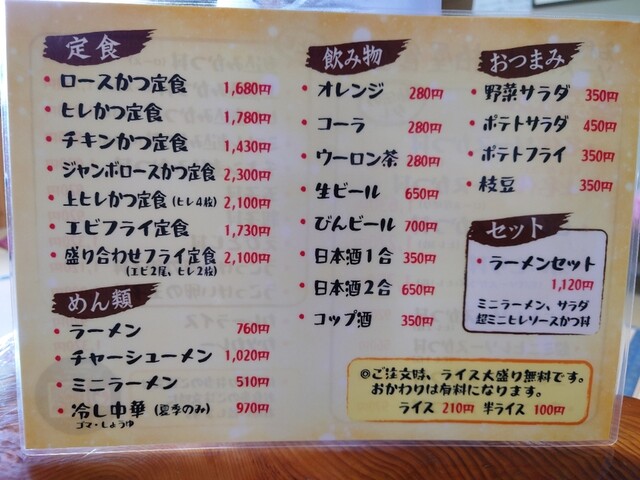 定食
ロースかつ定食 1,680円
ヒレかつ定食 1,780円
チキンかつ定食 1,430円
ジャンボロースかつ定食 2,300円
上ヒレかつ定食(ヒレ4枚) 2,100円
エビフライ定食 1,730円
盛り合わせフライ定食 2,100円
(エビ2尾、ヒレ2枚)
めん類
ラーメン 760円
チャーシューメン 1,020円
ミニラーメン 510円
冷し中華(夏季のみ) 970円
ゴマ・しょうゆ
飲み物
オレンジ 280円
コーラ 280円
ウーロン茶 280円
生ビール 650円
びんビール 700円
日本酒1合 350円
日本酒2合 650円
コップ酒 350円
おつまみ
野菜サラダ 350円
ポテトサラダ 450円
ポテトフライ 350円
枝豆 350円
セット
ラーメンセット
1,120円
ミニラーメン、サラダ
超ミニヒレソースかつ丼
◎ご注文時、ライス大盛り無料です。
おかわりは有料になります。
ライス 210円 半ライス 100円